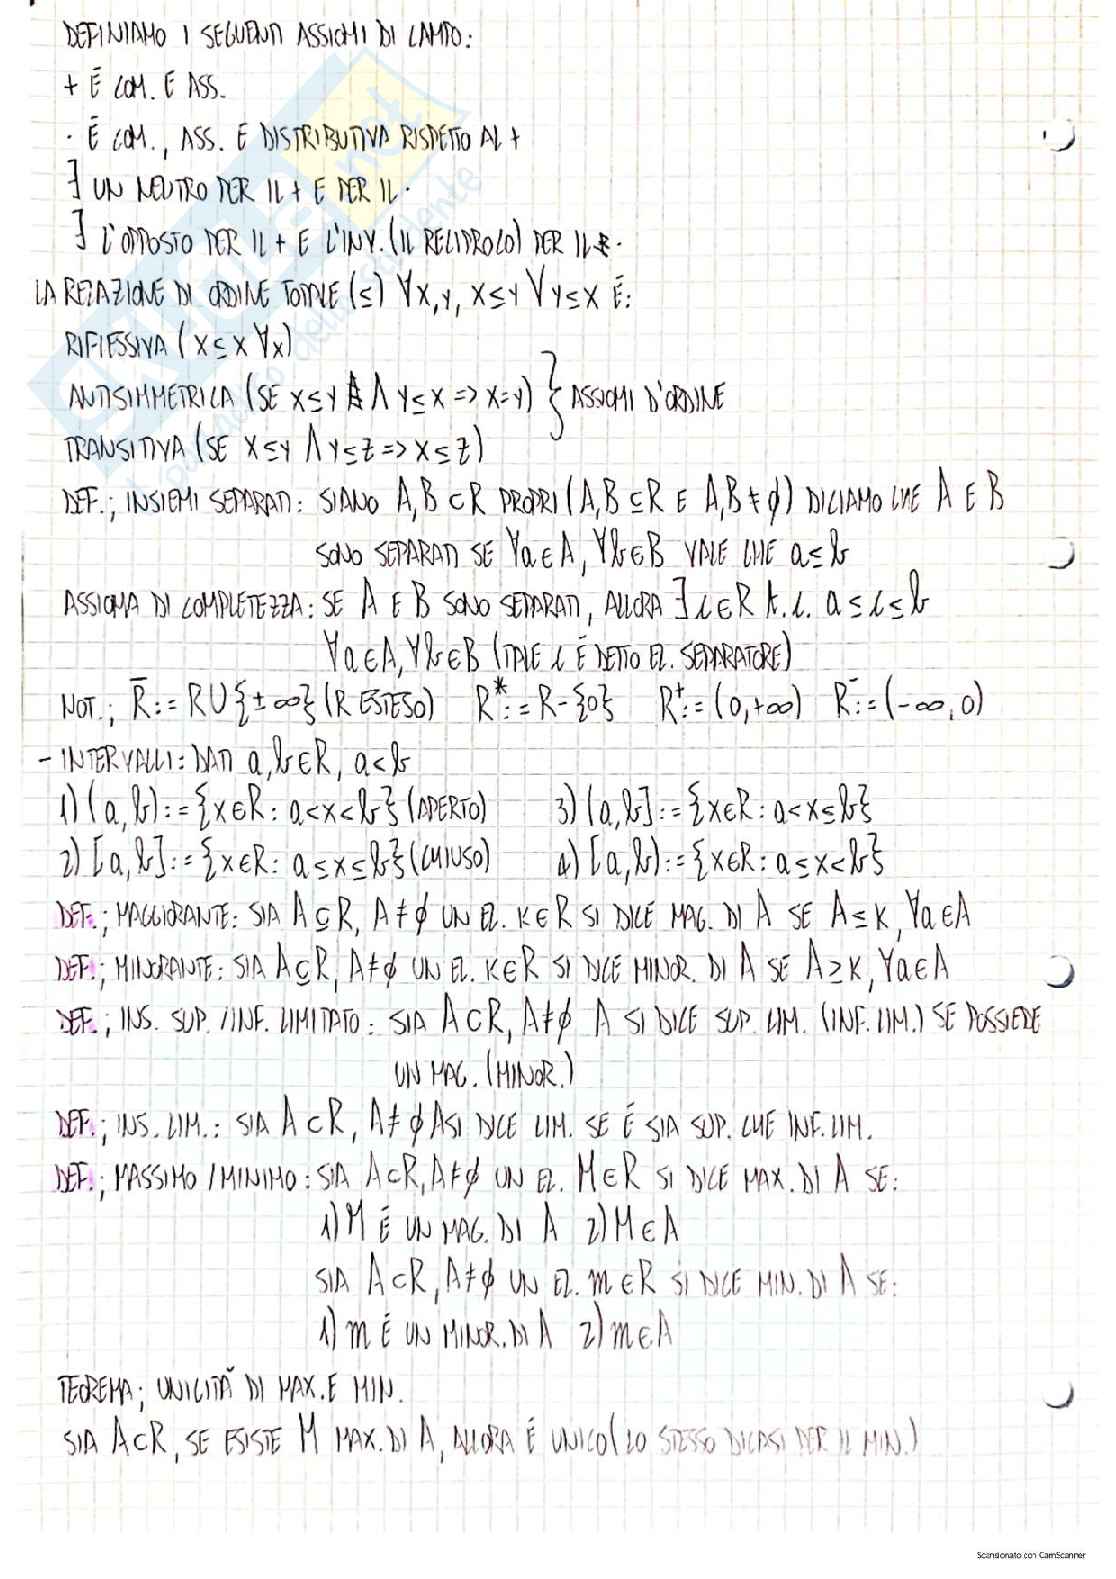 DEFINIAMO I SEGUENTI ASSIOMI DI CAMPO:
+ É COM. E ASS.
· É COM., ASS. E DISTRIBUTIVA RISPETTO AL +
∃ UN NEUTRO PER IL + E PER IL ·
∃ L'OPPOSTO PER IL + E L'INV. (IL RECIPROCO) PER IL ·
LA RELAZIONE DI ORDINE TOTALE (≤) ∀x,y, x≤y ∨ y≤x É:
RIFLESSIVA (x≤x ∀x)
ANTISIMMETRICA (SE x≤y ∧ y≤x => x=y) } ASSIOMI D'ORDINE
TRANSITIVA (SE x≤y ∧ y≤z => x≤z)
DEF.; INSIEMI SEPARATI: SIANO A,B⊂R PROPRI (A,B⊆R E A,B≠∅) DICIAMO CHE A E B
SONO SEPARATI SE ∀a∈A, ∀b∈B VALE CHE a≤b
ASSIOMA DI COMPLETEZZA: SE A E B SONO SEPARATI, ALLORA ∃c∈R t.c. a≤c≤b
∀a∈A, ∀b∈B (TALE c É DETTO EL. SEPARATORE)
NOT.; R̄:= R∪{±∞} (R ESTESO) R*:= R-{0} R⁺:= (0,+∞) R⁻:= (-∞,0)
- INTERVALLI: DATI a,b∈R, a<b
1) (a,b):= {x∈R: a<x<b} (APERTO) 3) (a,b]:= {x∈R: a<x≤b}
2) [a,b]:= {x∈R: a≤x≤b} (CHIUSO) 4) [a,b):= {x∈R: a≤x<b}
DEF.; MAGGIORANTE: SIA A⊆R, A≠∅ UN EL. K∈R SI DICE MAG. DI A SE A≤K, ∀a∈A
DEF.; MINORANTE: SIA A⊆R, A≠∅ UN EL. K∈R SI DICE MINOR. DI A SE A≥K, ∀a∈A
DEF.; INS. SUP. / INF. LIMITATO: SIA A⊂R, A≠∅ A SI DICE SUP. LIM. (INF. LIM.) SE POSSIEDE
UN MAG. (MINOR.)
DEF.; INS. LIM.: SIA A⊂R, A≠∅ A SI DICE LIM. SE É SIA SUP. CHE INF. LIM.
DEF.; MASSIMO / MINIMO: SIA A⊂R, A≠∅ UN EL. M∈R SI DICE MAX. DI A SE:
1) M É UN MAG. DI A 2) M∈A
SIA A⊂R, A≠∅ UN EL. m∈R SI DICE MIN. DI A SE:
1) m É UN MINOR. DI A 2) m∈A
TEOREMA; UNICITÀ DI MAX. E MIN.
SIA A⊂R, SE ESISTE M MAX. DI A, ALLORA É UNICO (LO STESSO DICASI PER IL MIN.)
Scansionato con CamScanner